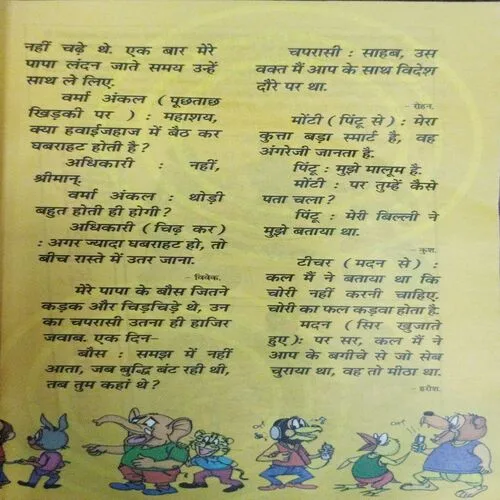 नहीं चढ़े थे. एक बार मेरे
पापा लंदन जाते समय उन्हें
साथ ले लिए.
वर्मा अंकल ( पूछताछ
खिड़की पर ) : महाशय,
क्या हवाईजहाज में बैठ कर
घबराहट होती है ?
अधिकारी : नहीं,
श्रीमान्.
वर्मा अंकल : थोड़ी
बहुत होती ही होगी ?
अधिकारी ( चिढ़ कर )
: अगर ज्यादा घबराहट हो, तो
बीच रास्ते में उतर जाना.
– विवेक.
मेरे पापा के बौस जितने
कड़क और चिड़चिड़े थे, उन
का चपरासी उतना ही हाजिर
जवाब. एक दिन–
बौस : समझ में नहीं
आता, जब बुद्धि बंट रही थी,
तब तुम कहां थे ?
चपरासी : साहब, उस
वक्त मैं आप के साथ विदेश
दौरे पर था.
– रोहन.
मोंटी ( पिंटू से ) : मेरा
कुत्ता बड़ा स्मार्ट है, वह
अंगरेजी जानता है.
पिंटू : मुझे मालूम है.
मोंटी : पर तुम्हें कैसे
पता चला ?
पिंटू : मेरी बिल्ली ने
मुझे बताया था.
– कुश.
टीचर ( मदन से ) :
कल मैं ने बताया था कि
चोरी नहीं करनी चाहिए.
चोरी का फल कड़वा होता है.
मदन ( सिर खुजाते
हुए ) : पर सर, कल मैं ने
आप के बगीचे से जो सेब
चुराया था, वह तो मीठा था.
– हरीश.